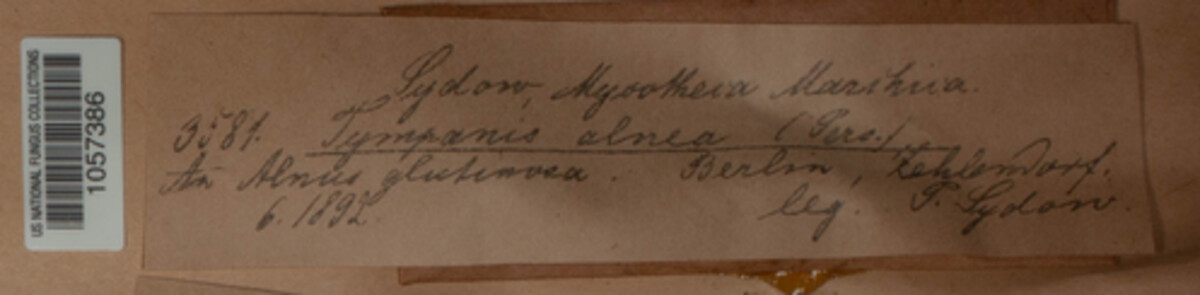 US NATIONAL FUNGUS COLLECTIONS
1057386
Sydow, Mycotheca Marchica.
3581. Tympanis alnea (Pers.)
An Alnus glutinosa. Berlin, Zehlendorf.
6. 1892. leg. P. Sydow.